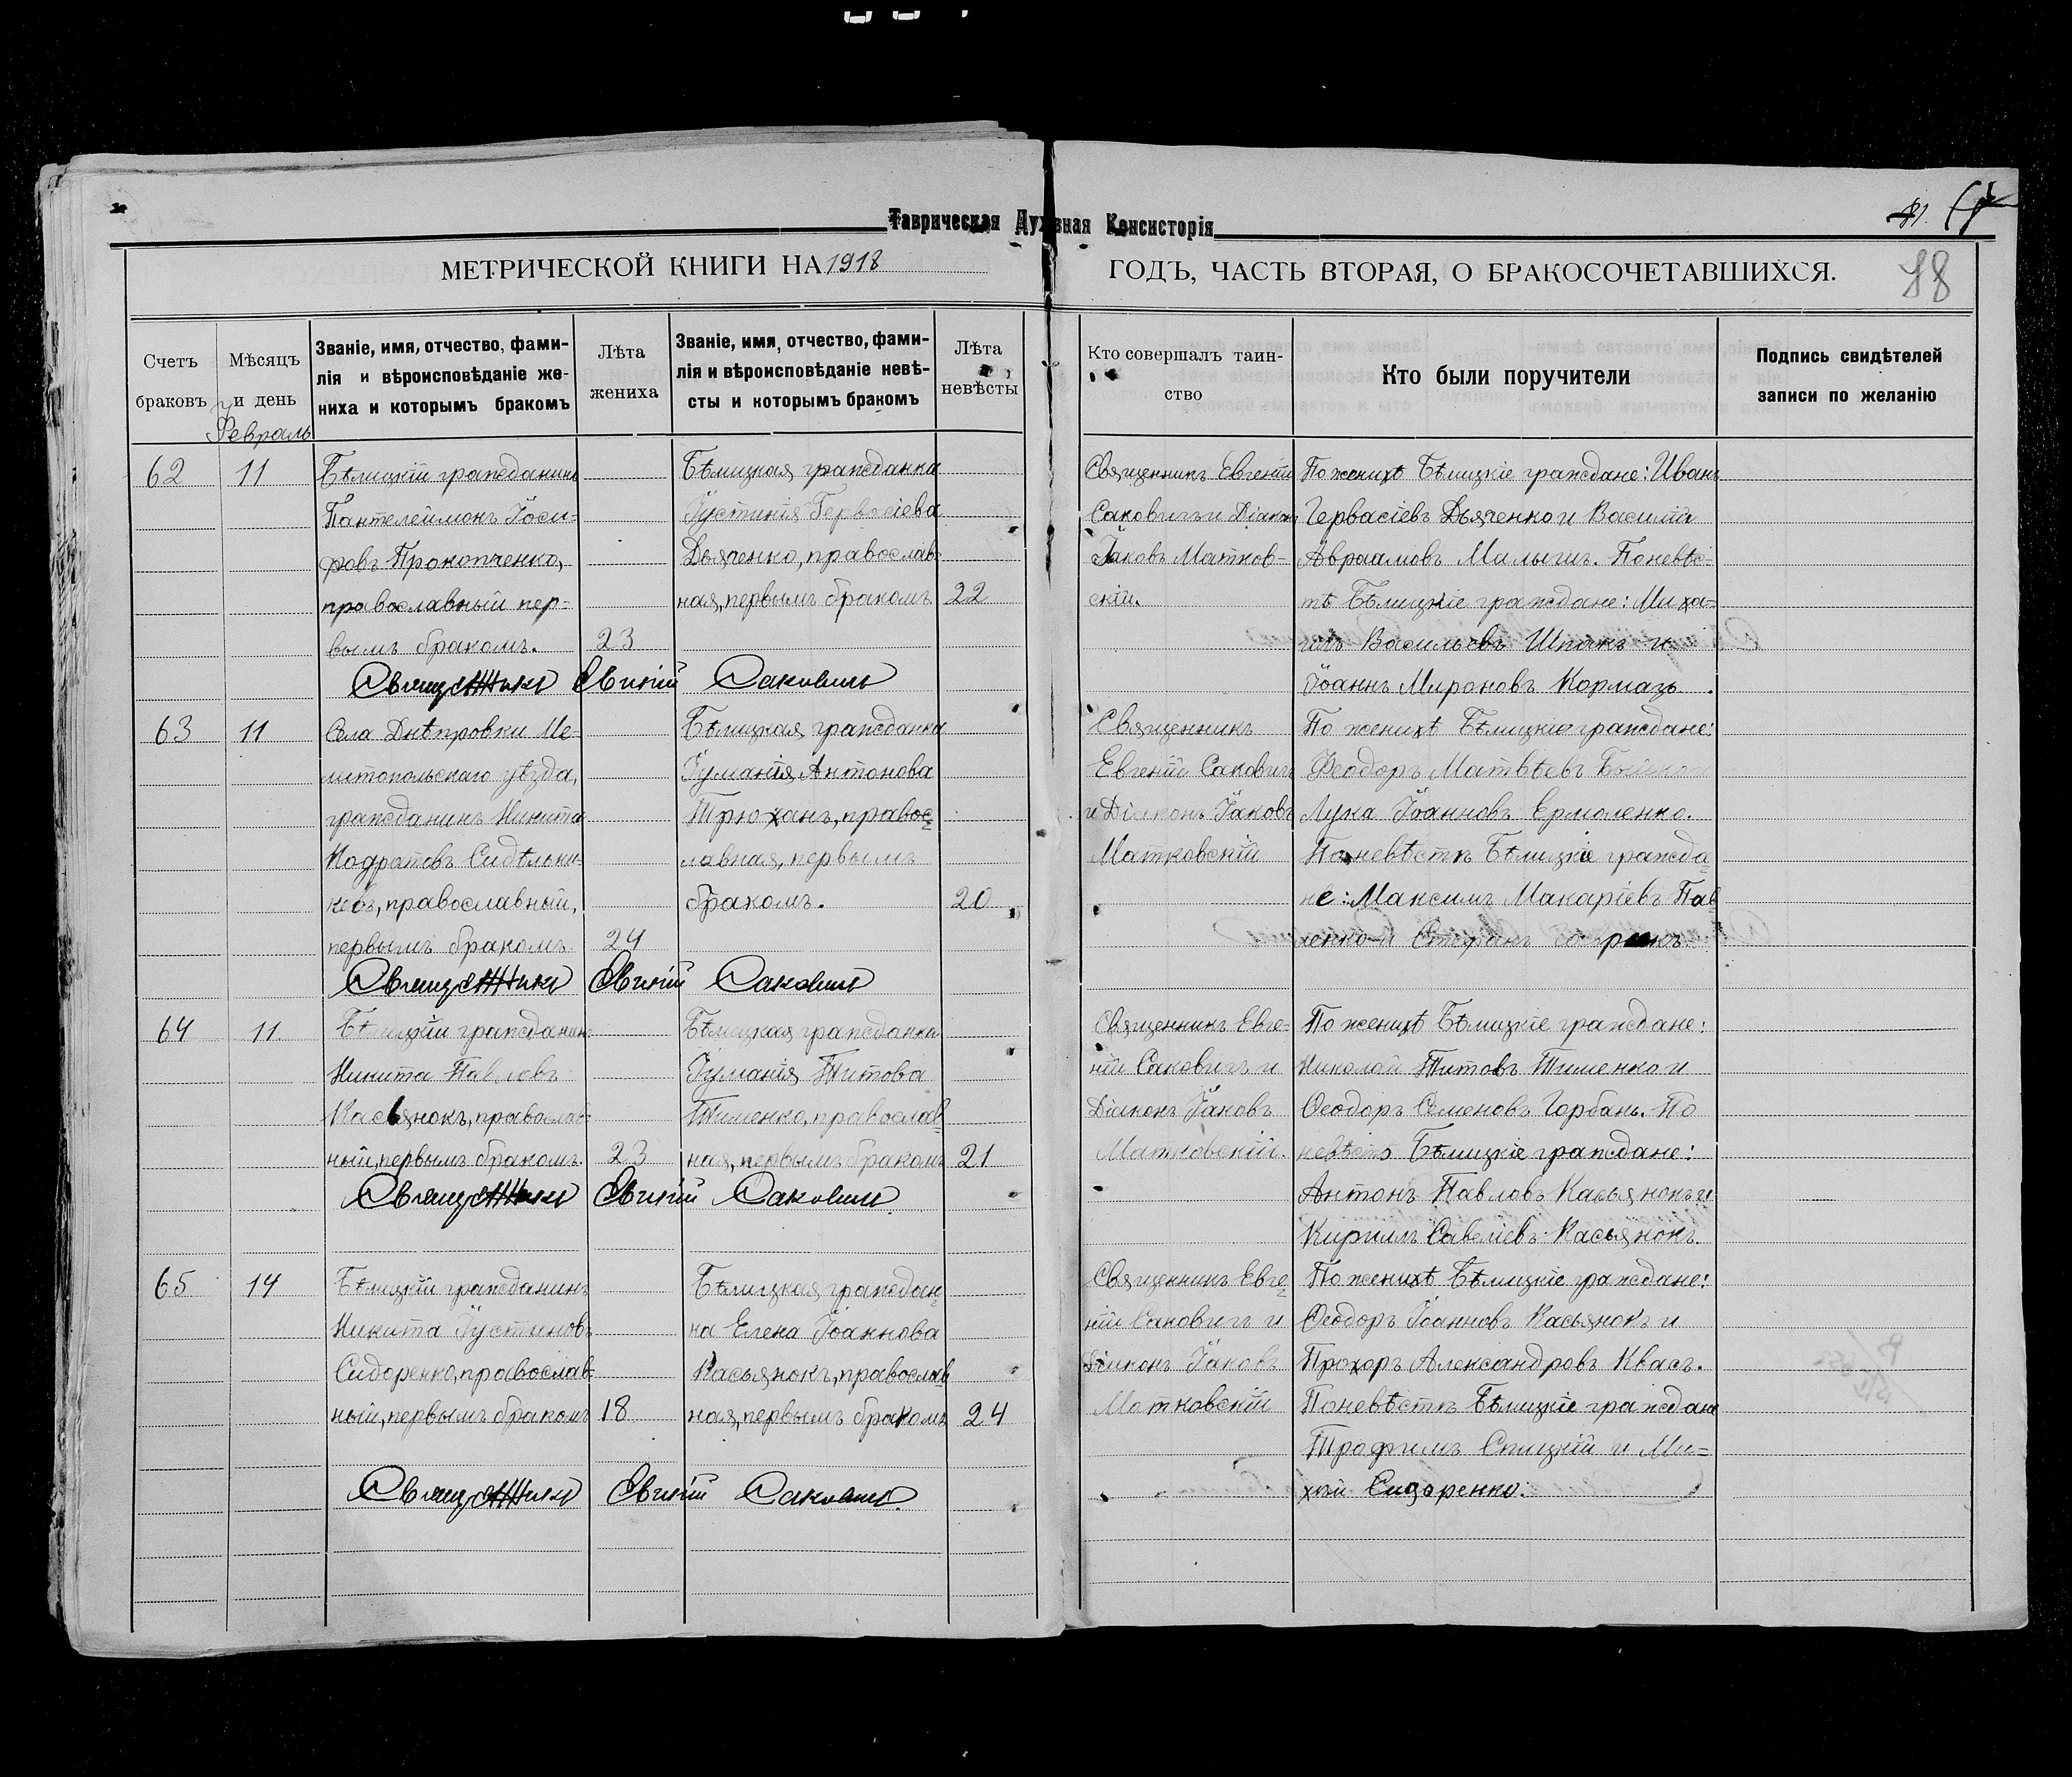 Таврическая Духовная Консисторія
МЕТРИЧЕСКОЙ КНИГИ НА 1918 ГОДЪ, ЧАСТЬ ВТОРАЯ, О БРАКОСОЧЕТАВШИХСЯ.
81.
88
Счетъ браковъ
Мѣсяцъ и день
Званіе, имя, отчество, фами-
лія и вѣроисповѣданіе же-
ниха и которымъ бракомъ
Лѣта жениха
Званіе, имя, отчество, фами-
лія и вѣроисповѣданіе невѣ-
сты и которымъ бракомъ
Лѣта невѣсты
Кто совершалъ таин-
ство
Кто были поручители
Подпись свидѣтелей
записи по желанію
Февраль
62
11
Бѣлицкій гражданинъ
Пантелеймонъ Іоси-
фовъ Прокопченко,
православный пер-
вымъ бракомъ.
23
Бѣлицкая гражданка
Іустинія Гервасіева
Дьяченко, православ-
ная, первымъ бракомъ
22
Священникъ Евгеній
Саковичъ и Діаконъ
Іаковъ Матков-
скій.
По женихѣ Бѣлицкіе граждане: Иванъ
Гервасіевъ Дьяченко и Василій
Авраамовъ Малышъ. По невѣс-
тѣ Бѣлицкіе граждане: Миха-
илъ Васильевъ Шпакъ и
Іоаннъ Мироновъ Кормазь.
Священникъ Евгеній Саковичъ
63
11
Села Днѣпровки Ме-
литопольскаго уѣзда,
гражданинъ Никита
Кодратовъ Сидѣльни-
ковъ, православный,
первымъ бракомъ
24
Бѣлицкая гражданка
Іуманія Антонова
Трюханъ, правос-
лавная, первымъ
бракомъ.
20
Священникъ
Евгеній Саковичъ
и Діаконъ Іаковъ
Матковскій
По женихѣ Бѣлицкіе граждане:
Феодоръ Матвѣевъ
Лука Іоанновъ Ермоленко.
По невѣстѣ Бѣлицкіе гражда-
не: Максимъ Макаріевъ Пав-
ленко и Стефанъ
Священникъ Евгеній Саковичъ
64
11.
Бѣлицкій гражданинъ
Никита Павловъ
Касьянокъ, православ-
ный, первымъ бракомъ.
23
Бѣлицкая гражданка
Іуманія Титова
Тименко, православ-
ная, первымъ бракомъ
21
Священникъ Евге-
ній Саковичъ и
Діаконъ Іаковъ
Матковскій.
По женихѣ Бѣлицкіе граждане:
Николай Титовъ Тименко и
Ѳеодоръ Семеновъ Горбань. По
невѣстѣ Бѣлицкіе граждане:
Антонъ Павловъ Касьянокъ и
Кириллъ Савеліевъ Касьянокъ.
Священникъ Евгеній Саковичъ
65
14
Бѣлицкій гражданинъ
Никита Іустиновъ
Сидоренко, православ-
ный, первымъ бракомъ
18
Бѣлицкая граждан-
ка Елена Іоаннова
Касьянокъ, православ-
ная, первымъ бракомъ
24
Священникъ Евге-
ній Саковичъ и
Діаконъ Іаковъ
Матковскій
По женихѣ Бѣлицкіе граждане:
Ѳеодоръ Іоанновъ Касьянокъ и
Прохоръ Александровъ Квасъ.
По невѣстѣ Бѣлицкіе граждане
Трофимъ Спицкій и Ми-
хей Сидоренко.
Священникъ Евгеній Саковичъ